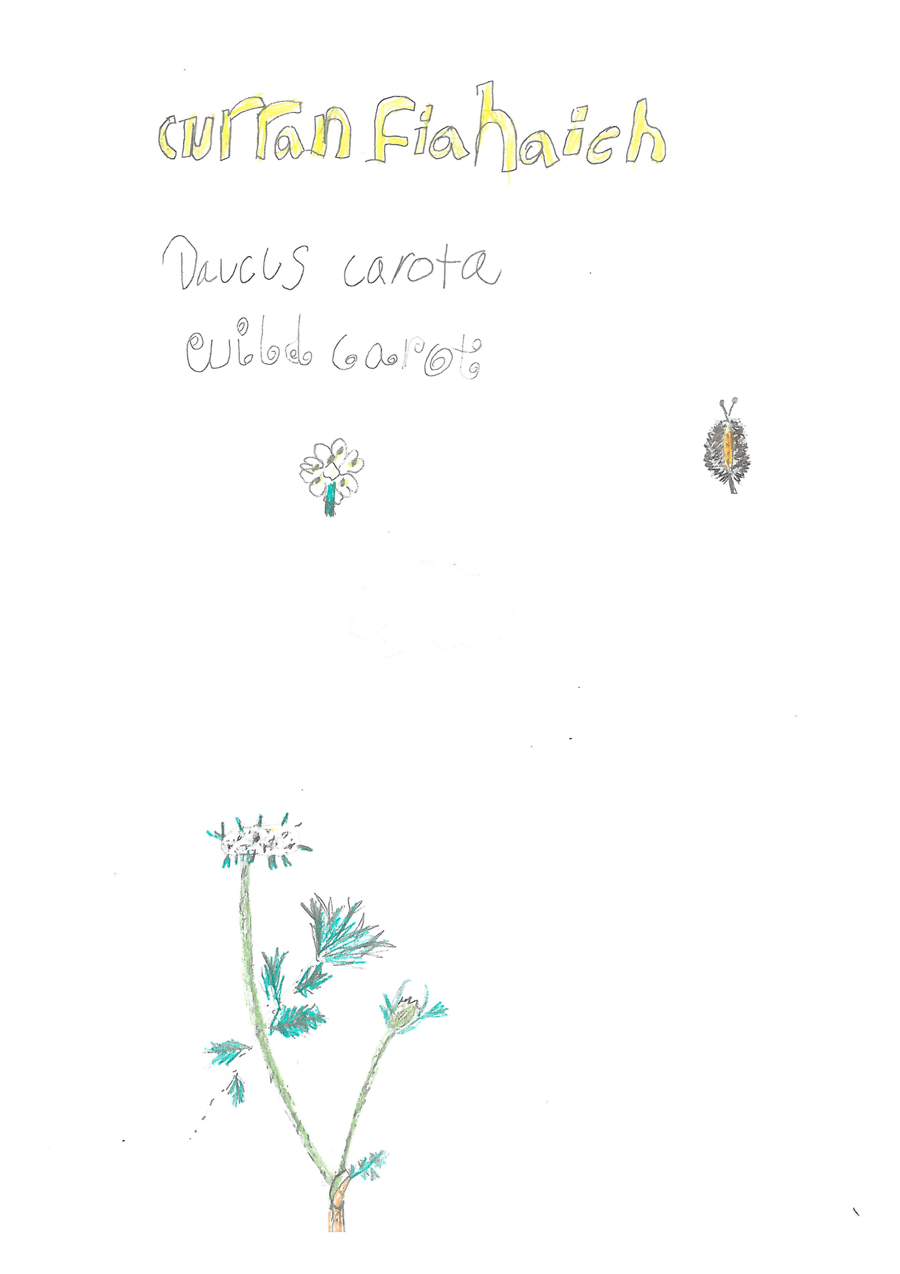 curran Fiahaich
Daucus carota
wild carot